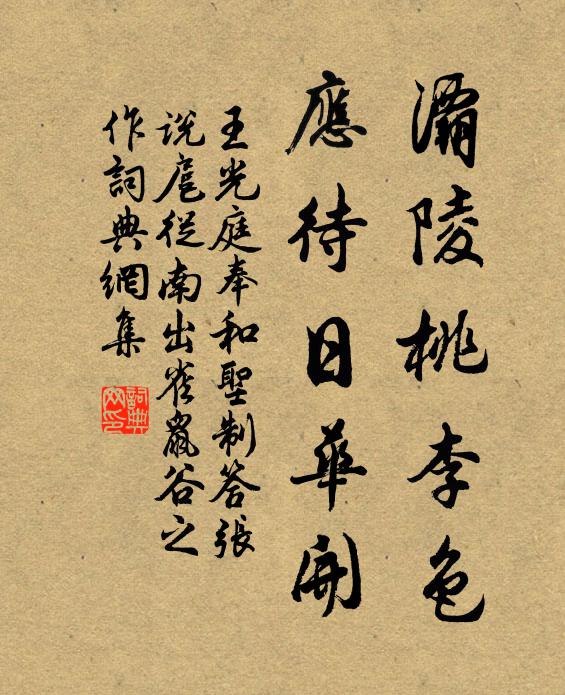 灞陵桃李色
應待日華開
王光庭奉和聖制答張
說扈從南出雀鼠谷之
作詞典網集
詞典
网印